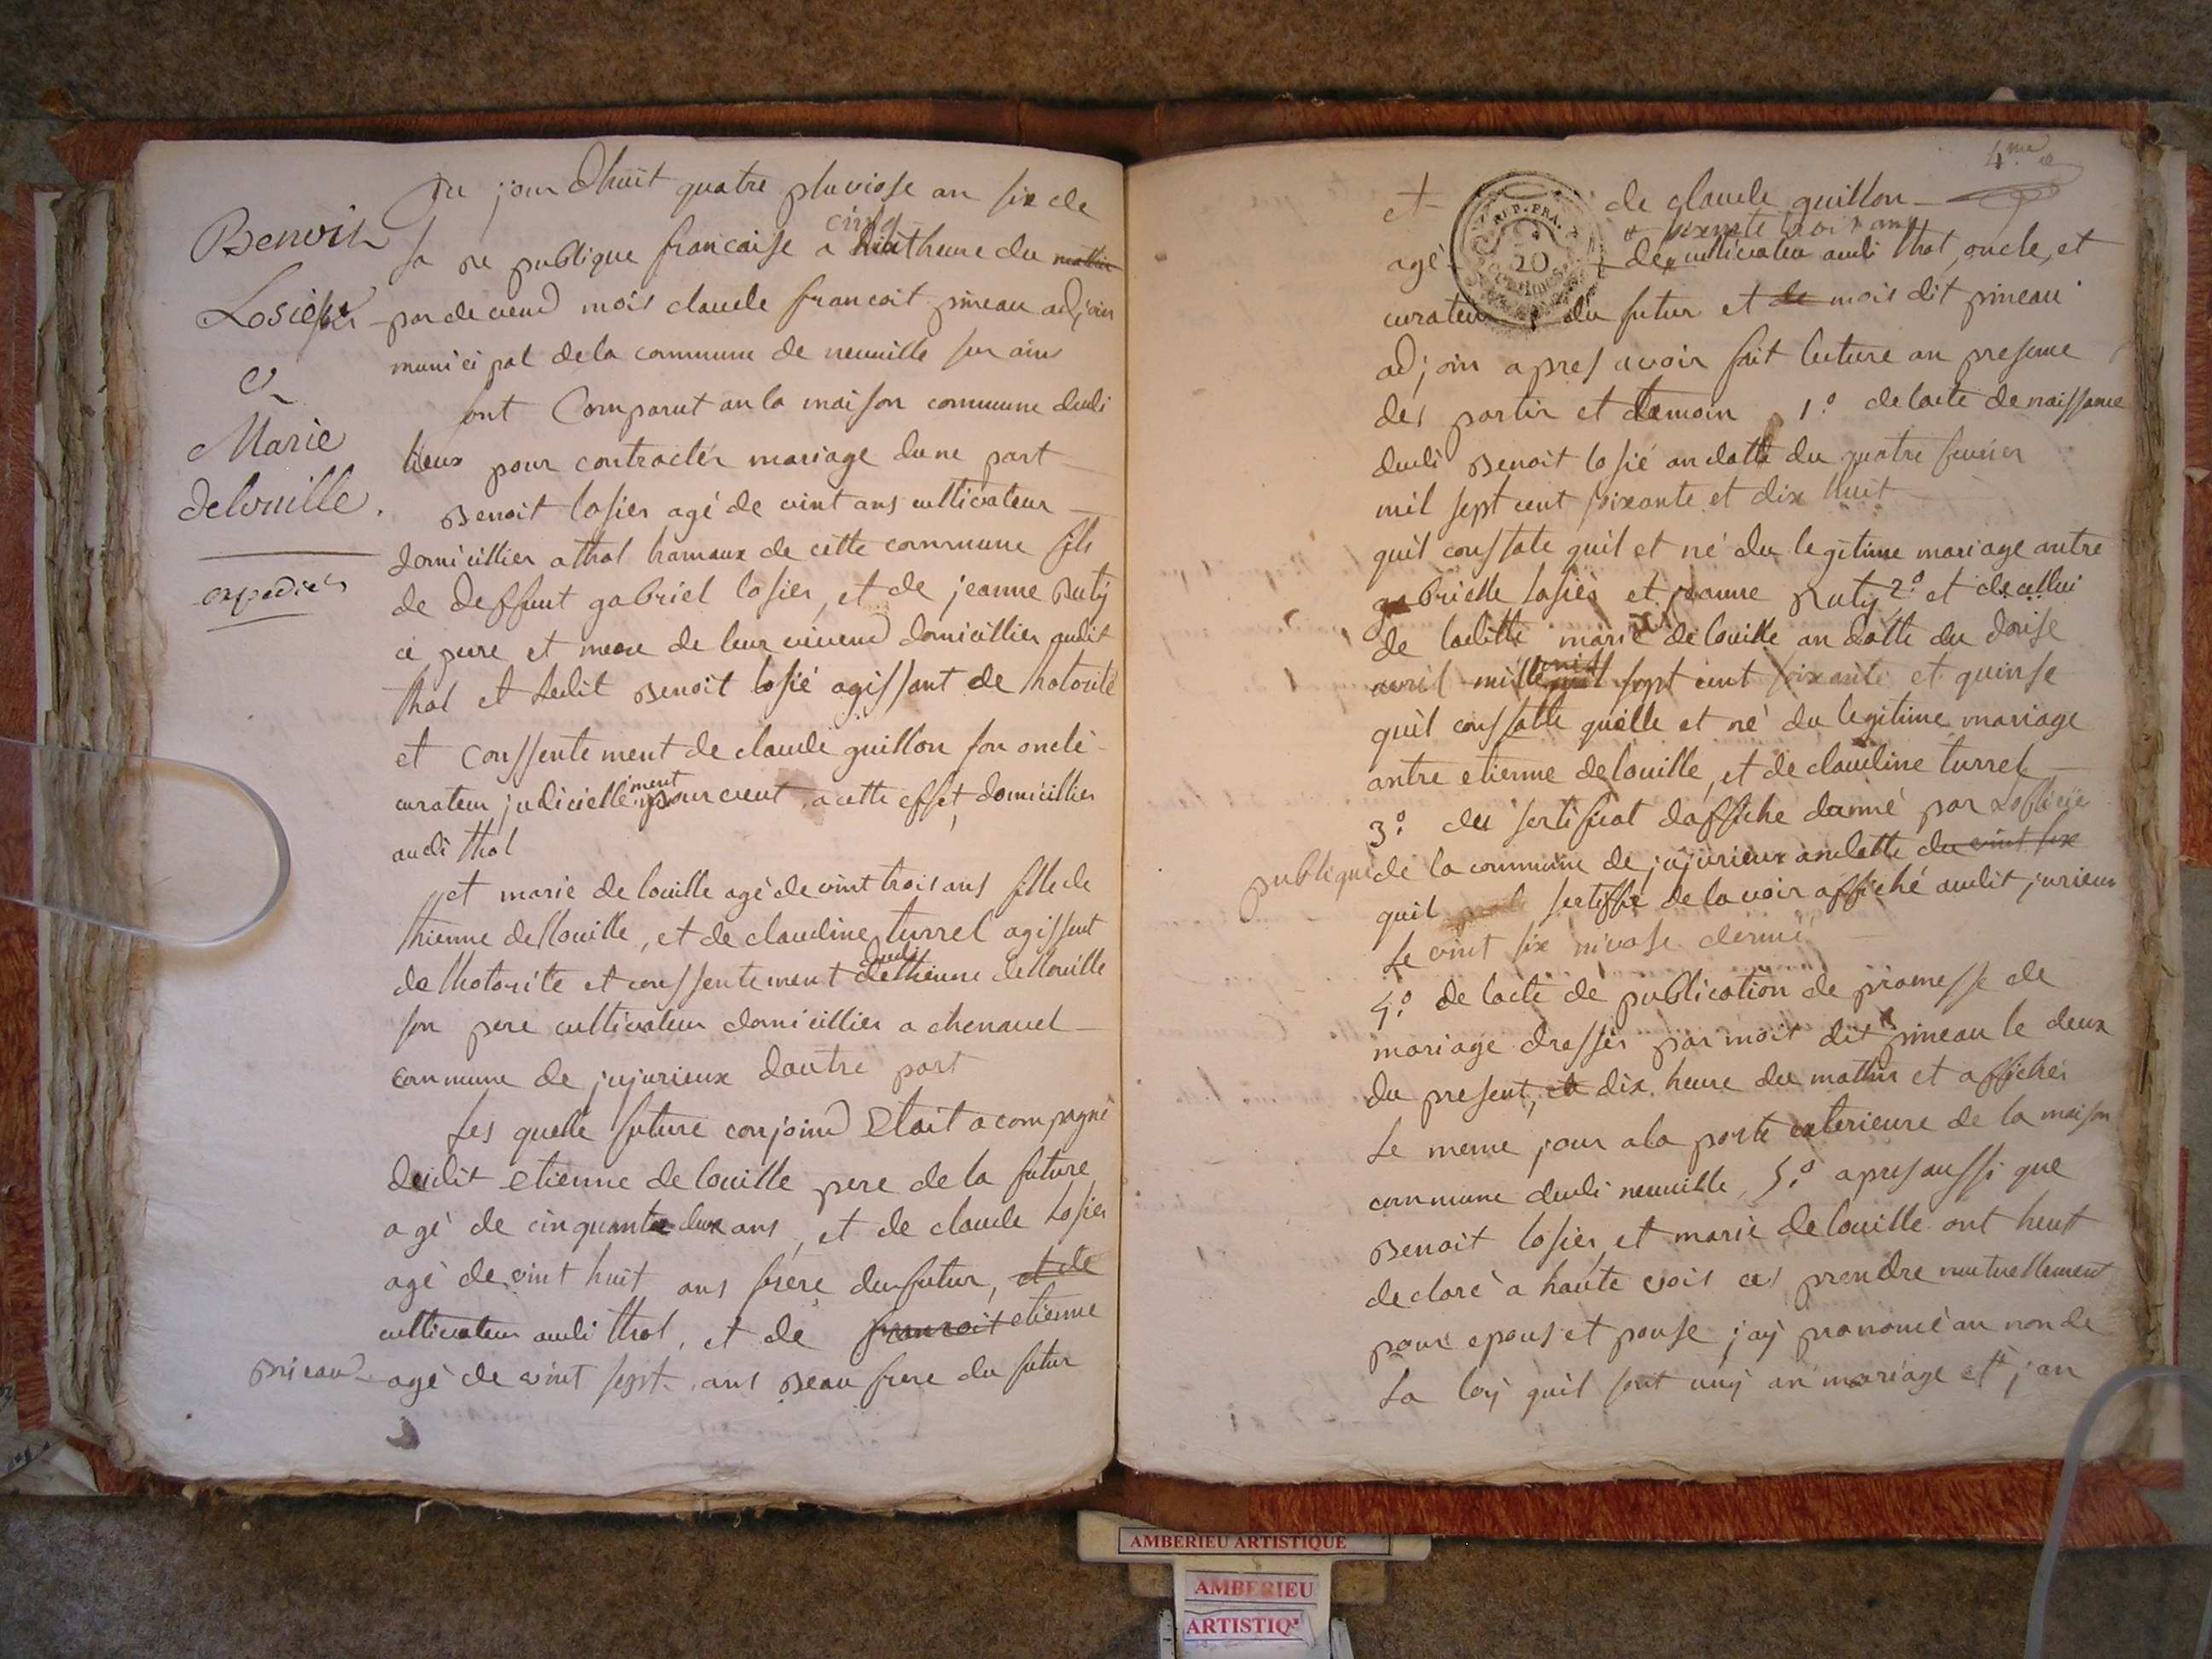 Benoit
Losier
et
Marie
delouille.
expediée
Du jour dhuit quatre pluviose an six de
la re publique francaise a cinq huit heure du mattin
par de vend mois claude francoit pineau adjoin
municipal de la commune de neuville sur ain
sont Comparut an la maison commune dudi
lieux pour contracter mariage dune part
Benoit losier agé de vint ans cultivateur
domicillier a thol hamaux de cette commune fils
de deffunt gabriel losier, et de jeanne Ruty
ci pere et mere de leur vivend domicillier audit
thol et ledit Benoit losié agissant de hotorité
et conssentement de claude guillon son oncle
curateur judiciellement pourveut a cette effet, domicillier
audi thol
et marie de louille agé de vint trois ans fille de
thienne dellouille, et de claudine turrel agissent
de lhotorite et conssentement dudi dethienne dellouille
son pere cultivateur domicillier a chenavel
commune de jujurieux dautre part
Les quelle future conjoind Etait acompagné
deudit etienne de louille pere de la future
agé de cinquante deux ans, et de claude Losier
agé de vint huit ans frere du futur, et de
cultivateur audi thol, et de francoit etienne
prieau agé de vint sept ans Beau frere du futur
4.me
et de claude guillon
REP. FRA.
20
CENTIMES
agé de soixente trois ans cultivateu audi thol, oncle, et
curateur du futur et de mois dit pineau
adjoin apres avoir fait lecture an presance
des partir et temoin 1.º de lacte de naissance
dudi Benoit losié an datte du quatre fevrier
mil sept cent soixante et dix huit
quil consstate quil et né du legitime mariage antre
gabrielle losier et jeanne Ruty 2.º et de cellui
de laditte marie de louille an datte du douse
avril mille mil sept cent soixante et quinse
quil consstatte quélle et né du legitime mariage
antre etienne de louille, et de claudine turrel
3.º du sertificat daffiche donné par Loficié
publique de la commune de jujurieux an datte du vint six
quil sertiffie de lavoir affiché audit jurieux
Le vint six nivose dernié
4.º de lacte de publication de promesse de
mariage dresser par moit dit pineau le deux
du present, a dix heure du mattin et afficher
Le meme jour a la porte exterieure de la maison
commune dudi neuville, 5.º apres aussi que
Benoit losier et marie de louille ont heut
declaré a haute vois ces prendre mutuellement
pour epous et pouse jay prononcé au non de
La loy quil sont uny an mariage et jan
AMBERIEU ARTISTIQUE
AMBERIEU
ARTISTIQ